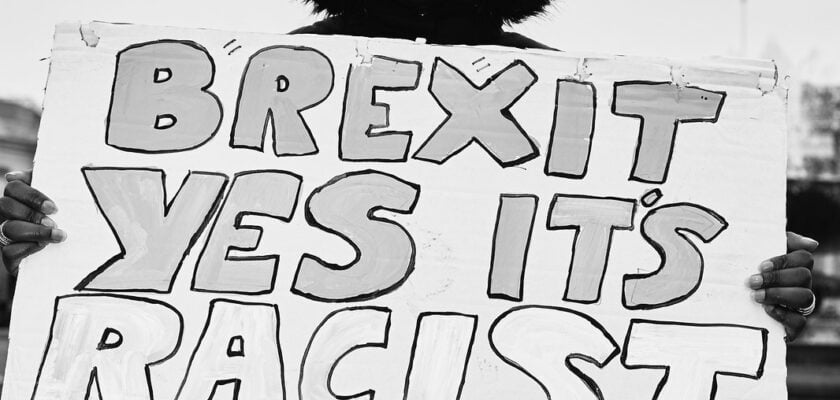 BREXIT
YES IT'S
RACIST